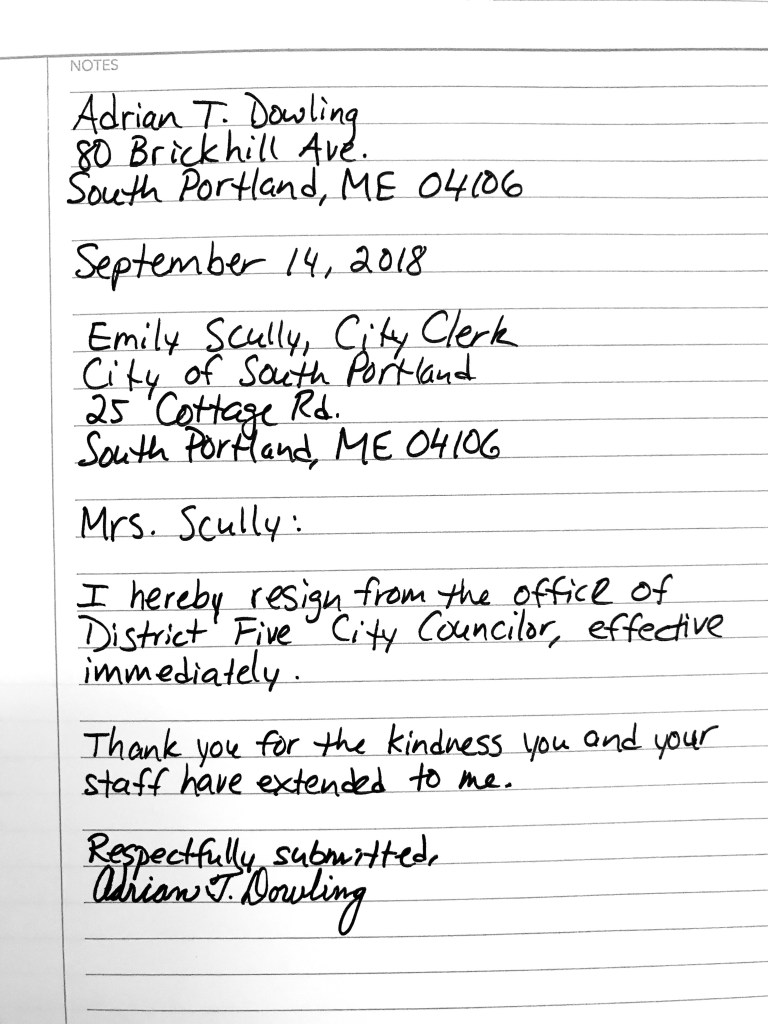 NOTES
Adrian T. Dowling
80 Brickhill Ave.
South Portland, ME 04106
September 14, 2018
Emily Scully, City Clerk
City of South Portland
25 Cottage Rd.
South Portland, ME 04106
Mrs. Scully:
I hereby resign from the office of
District Five City Councilor, effective
immediately.
Thank you for the kindness you and your
staff have extended to me.
Respectfully submitted,
Adrian T. Dowling